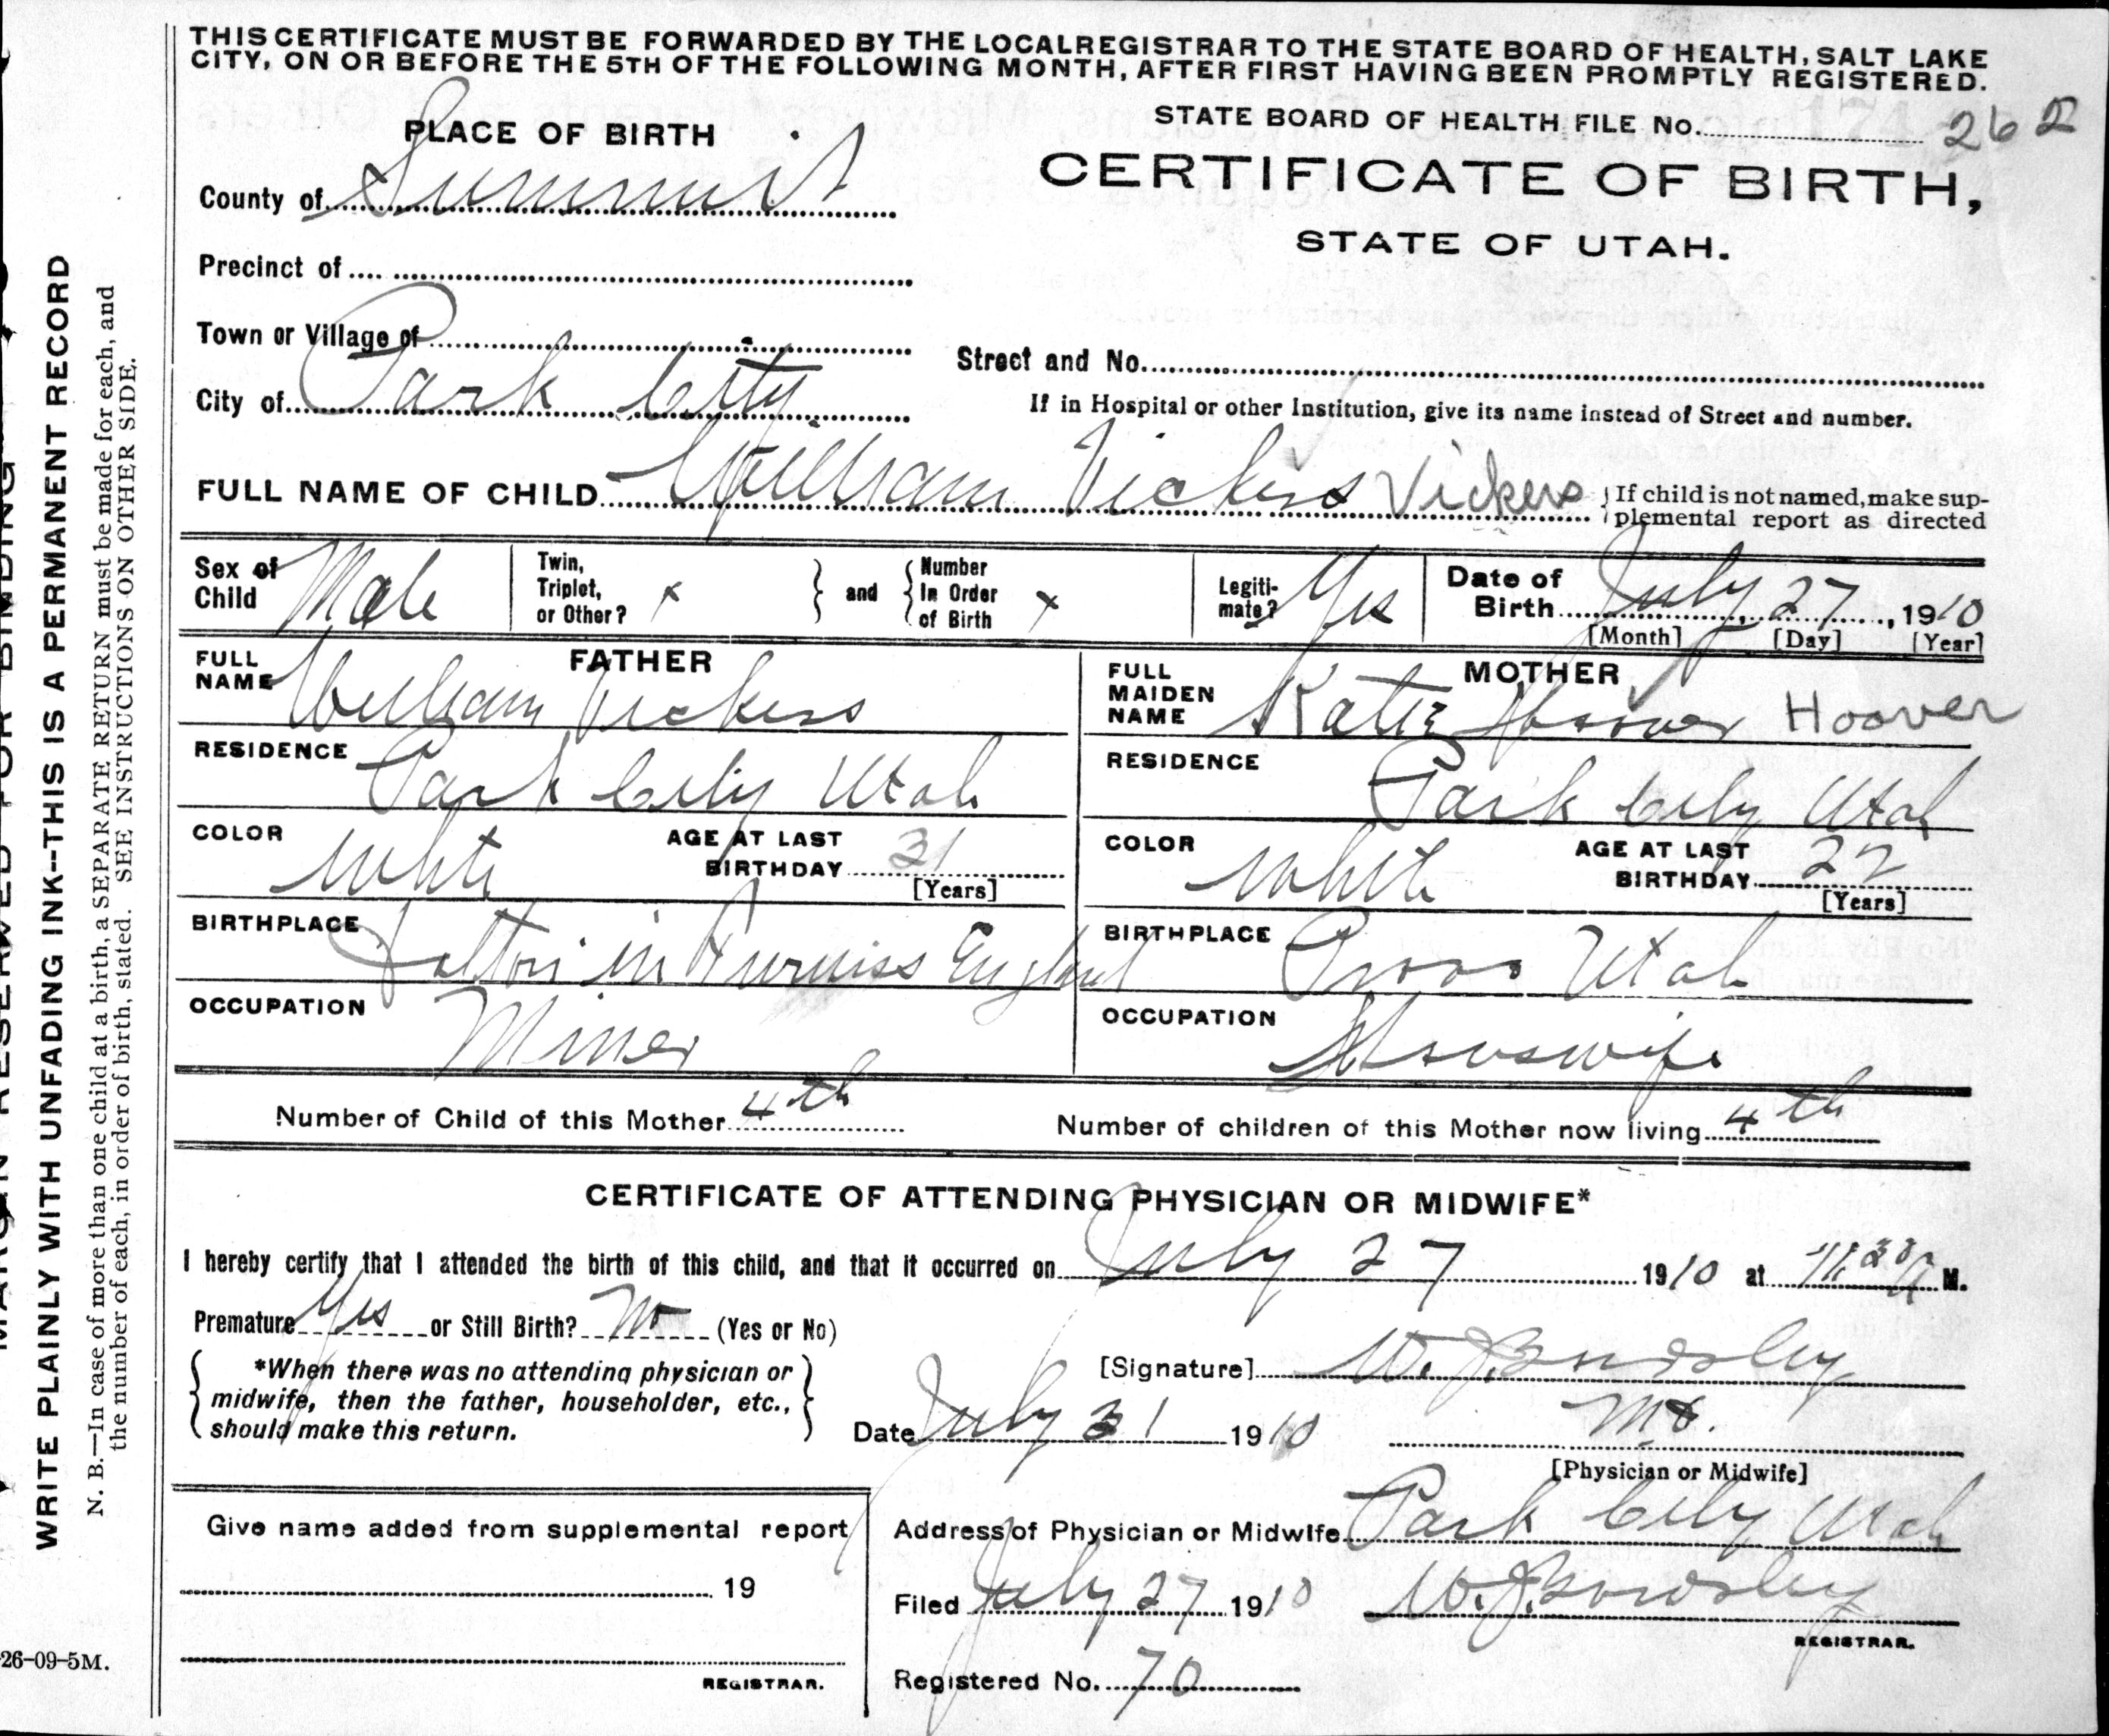 THIS CERTIFICATE MUST BE FORWARDED BY THE LOCAL REGISTRAR TO THE STATE BOARD OF HEALTH, SALT LAKE
CITY, ON OR BEFORE THE 5TH OF THE FOLLOWING MONTH, AFTER FIRST HAVING BEEN PROMPTLY REGISTERED.
STATE BOARD OF HEALTH FILE No. 262
PLACE OF BIRTH
CERTIFICATE OF BIRTH,
STATE OF UTAH.
County of Summit
Precinct of
Town or Village of
Street and No.
City of Park City
If in Hospital or other Institution, give its name instead of Street and number.
FULL NAME OF CHILD William Vickers Vickers
If child is not named, make sup-
plemental report as directed
Sex of Child Male
Twin, Triplet, or Other? x
and
Number In Order of Birth x
Legiti-mate? Yes
Date of Birth July 27, 1910
[Month] [Day] [Year]
FATHER
FULL NAME William Vickers
MOTHER
FULL MAIDEN NAME Katie Hoover Hoover
RESIDENCE Park City Utah
RESIDENCE Park City Utah
COLOR White
AGE AT LAST BIRTHDAY 31
[Years]
COLOR White
AGE AT LAST BIRTHDAY 22
[Years]
BIRTHPLACE Dalton in Furniss England
BIRTHPLACE Provo Utah
OCCUPATION Miner
OCCUPATION Houswife
Number of Child of this Mother 4th
Number of children of this Mother now living 4th
CERTIFICATE OF ATTENDING PHYSICIAN OR MIDWIFE*
I hereby certify that I attended the birth of this child, and that it occurred on July 27 1910 at 11:30 a M.
Premature Yes or Still Birth? No (Yes or No)
*When there was no attending physician or
midwife, then the father, householder, etc.,
should make this return.
[Signature] W. J.
Date July 31 1910
M.D.
[Physician or Midwife]
Give name added from supplemental report
19
REGISTRAR.
Address of Physician or Midwife Park City Utah
Filed July 27 1910 W. J.
REGISTRAR.
Registered No. 70
MARGIN RESERVED FOR BINDING
WRITE PLAINLY WITH UNFADING INK--THIS IS A PERMANENT RECORD
N. B.—In case of more than one child at a birth, a SEPARATE RETURN must be made for each, and
the number of each, in order of birth, stated. SEE INSTRUCTIONS ON OTHER SIDE.
26-09-5M.